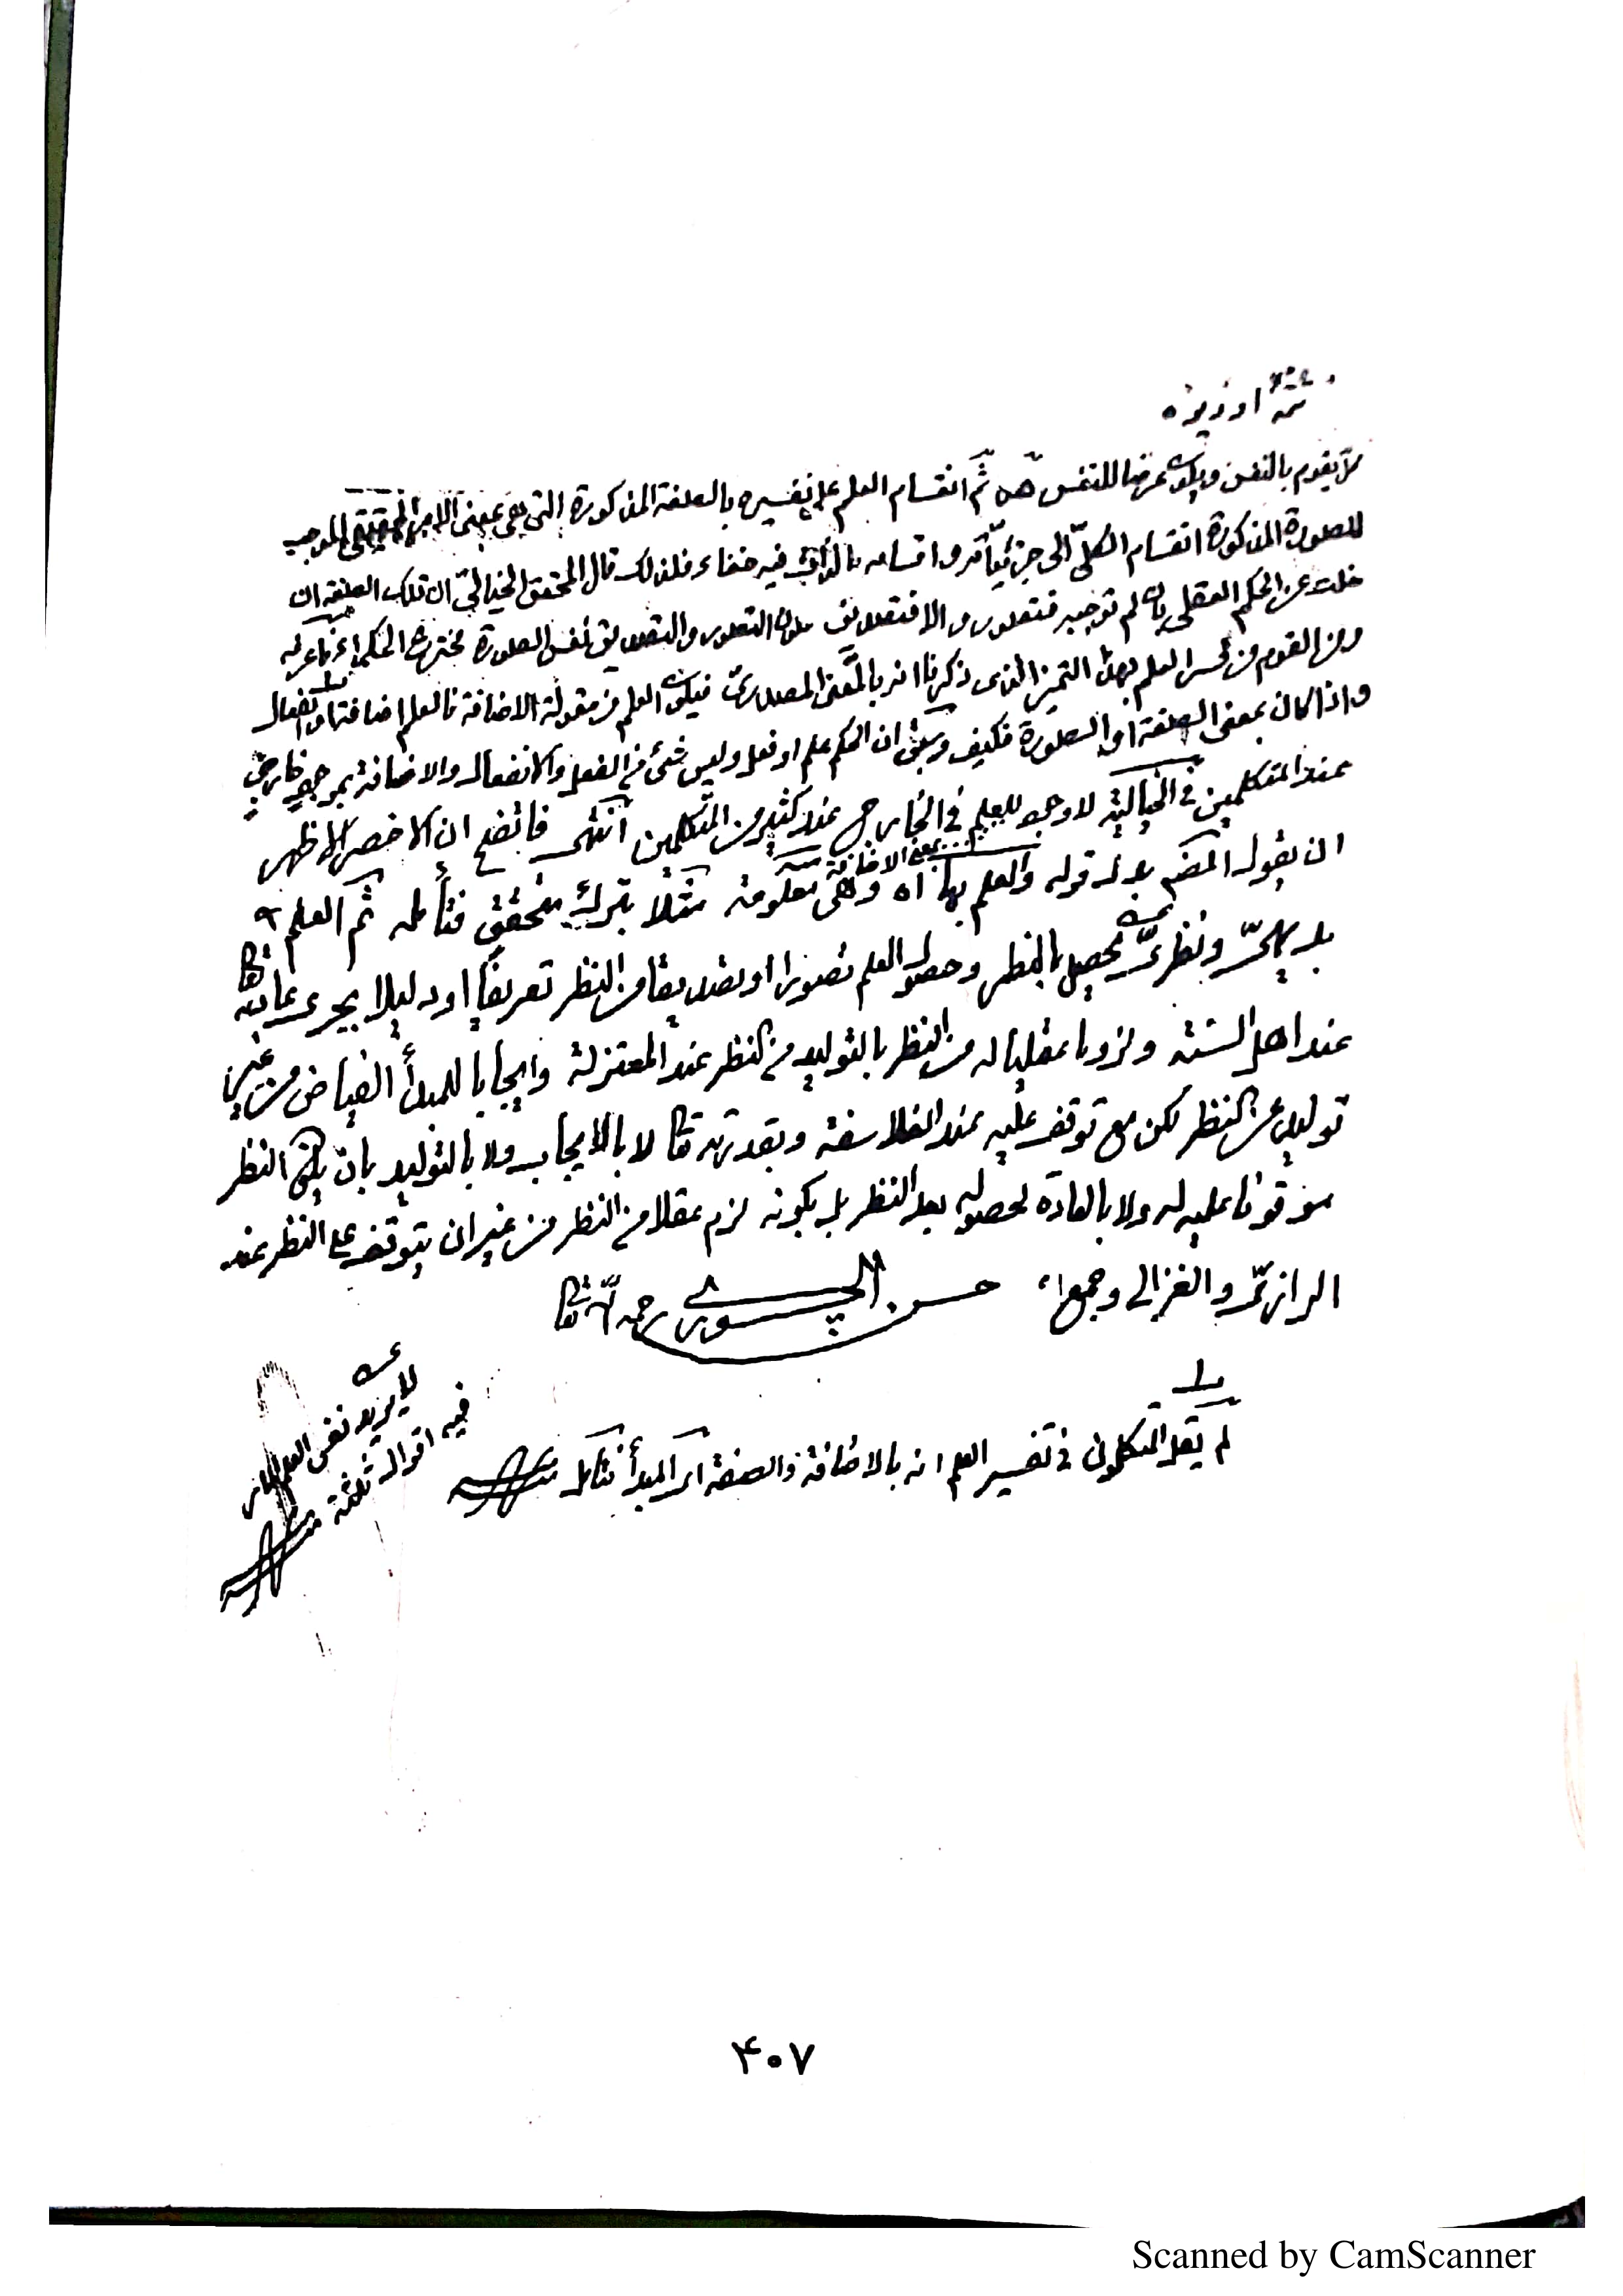 تتمة او زيره
لا يقوم بالنفس ويكون عرضا للنفس ثم انقسام العلم على تفسيره بالصفة المذكورة التى هى بمعنى الامر الحقيقى الموجب
للصورة المذكورة انقسام الكلىّ الى جزئيّاته واقسامه فيه خفاء فلذلك قال المحقق الخيالىّ ان تلك الصفة ان
خلت عن الحكم العقلى بان لم توجبه فتصور والا فتصديق التصور والتصديق نفس الصورة الحكماء
ومن القوم من فسر العلم بهذا التميز الذى ذكرنا انه بالمعنى المصدرىّ فيكون العلم من مقولة الاضافة فالعلم اضافة او انفعال
واذا كان بمعنى الصفة او الصورة فكيف وسبق ان الحكم علم او فعل وليس شئ من الفعل والانفعال والاضافة بموجود خارجى
عند المتكلمين فى الخيالية لا وجود للعلم فى الخارج عند كثير من المتكلمين انتهى فاتضح ان الاخصر الاظهر
بمعنى الاضافة
ان يقول المصنّف بدل قوله والعلم بها اه وهى معلومة مثلا بترك متحقق فتأمله ثم العلم
بديهىّ ونظرىّ يحصل بالنظر وحصول العلم تصورا او تصديقا من النظر تعريفا او دليلا بجرى عادته تعالى
عند اهل السنة ولزوما عقليا له من النظر بالتوليد من النظر عند المعتزلة وايجابا للمبدأ الفياض من غير
توليد عن النظر لكن مع توقف عليه عند الفلاسفة وبقدرته تعالى لا بالايجاب ولا بالتوليد بان يكون النظر
موقوفا عليه له ولا بالعادة لحصوله بعد النظر بل بكونه لزم عقلا من النظر من غير ان يتوقف على النظر عند
الرازىّ والغزالى وجمع اه حسن الچورى رحمه الله تعالى
لم يقل المتكلمون فى تفسير العلم انه بالاضافة والصفة اى المبدأ فتأمل منه
لا يريد نفس العلم
فيه اقوال ثلثة منه
۴۰۷
Scanned by CamScanner